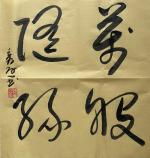 萬般
隨緣